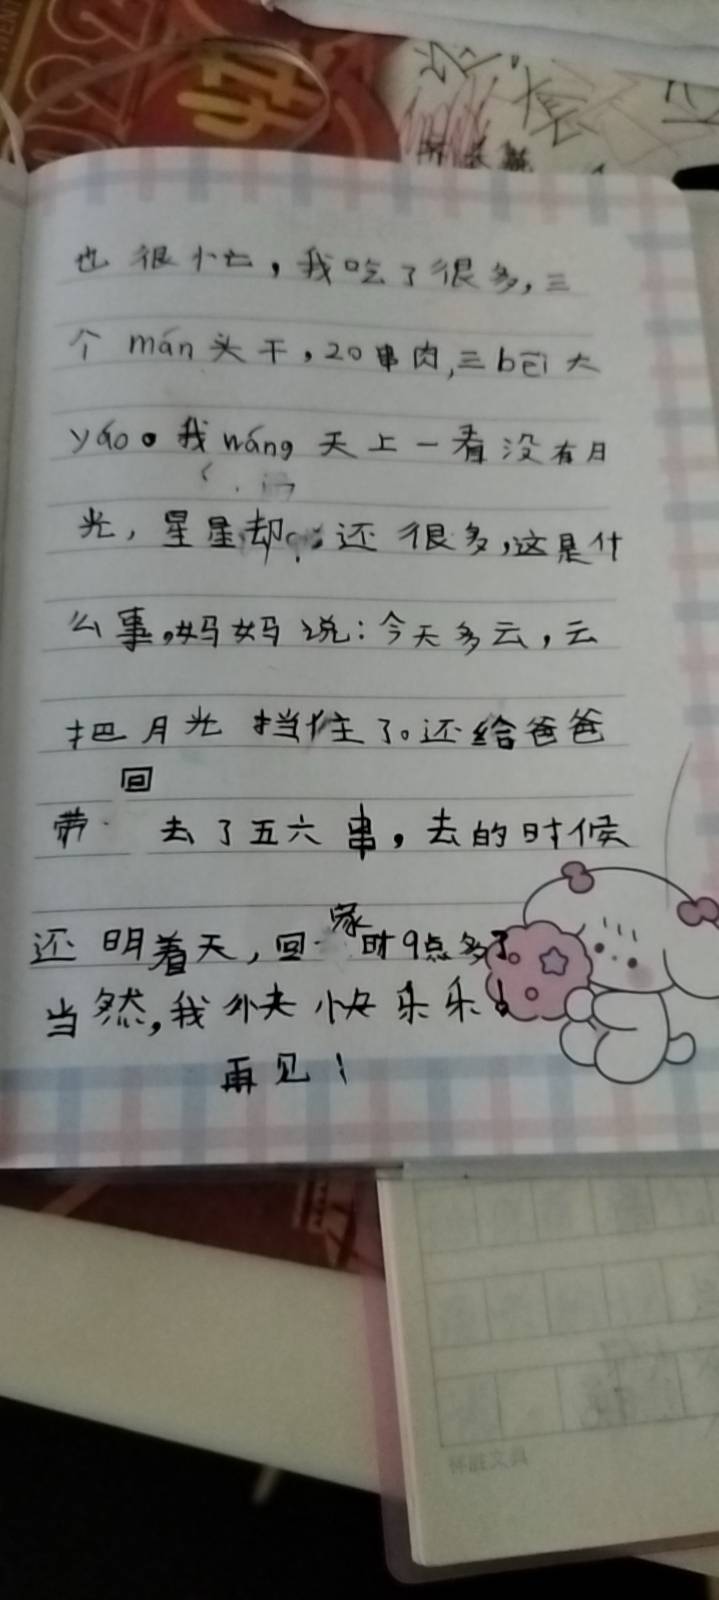 功
也很忙，我吃了很多，三
个mán头干，20串肉，三bēi大
yáo。我wáng天上一看没有月
光，星星却还很多，这是什
么事，妈妈说：今天多云，云
把月光挡住了。还给爸爸
带回去了五六串，去的时候
还明着天，回家时9点多了
当然，我外快快乐乐！
再见！